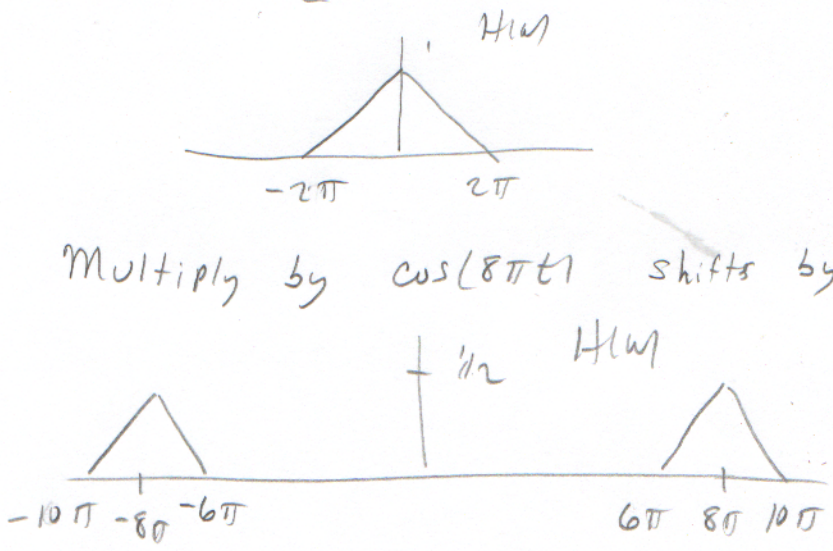 1 H(ω)
-2π 2π
Multiply by cos(8πt) shifts by
1/2 H(ω)
-10π -8π -6π 6π 8π 10π